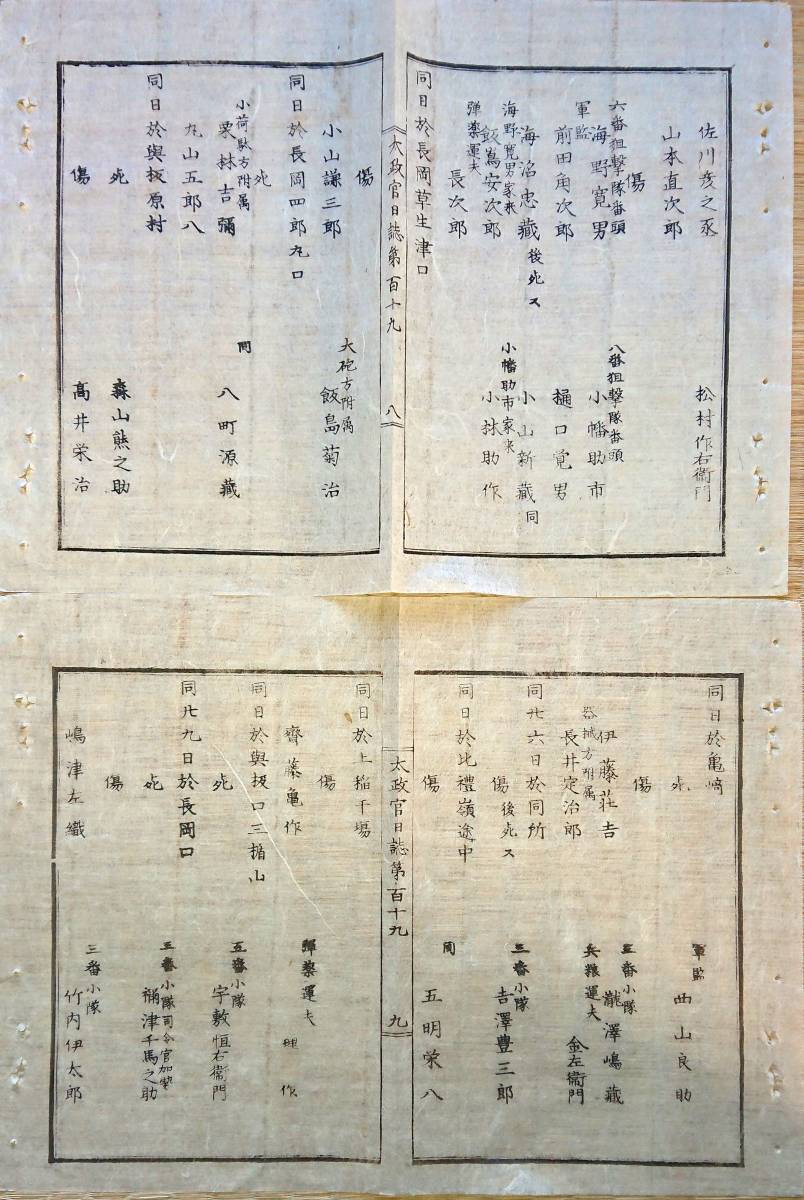 佐川彦之丞 松村作右衞門
山本直次郎
傷
六番狙撃隊番頭 海野寛男 八番狙撃隊番頭 小幡助市
軍監 前田角次郎 樋口寛男
海沼忠藏 後死ス 小山新藏 同
海野寛男家来 飯嶌安次郎 小幡助市家来 小林助作
弾薬運夫 長次郎
同日於長岡草生津口
太政官日誌第百十九 八
傷
小山謙三郎 大砲方附属 飯島菊治
同日於長岡四郎丸口
死
小荷駄方附属 栗林吉彌 同 八町源藏
丸山五郎八
同日於與板原村
死 森山熊之助
傷 高井栄治
同日於亀崎
死 軍監 西山良助
傷
伊藤荘吉 三番小隊 瀧澤嶋藏
器械方附属 長井定治郎 兵粮運夫 金左衞門
同廿六日於同所
傷 後死ス 三番小隊 吉澤豊三郎
同日於比禮嶺途中
傷 同 五明栄八
太政官日誌第百十九 九
同日於上稲干場
傷
齊藤亀作 弾薬運夫 理作
同日於與板口三楯山
死 五番小隊 宇敷恒右衞門
同廿九日於長岡口
死 三番小隊司令官加勢 禰津千馬之助
傷
嶋津左織 三番小隊 竹内伊太郎